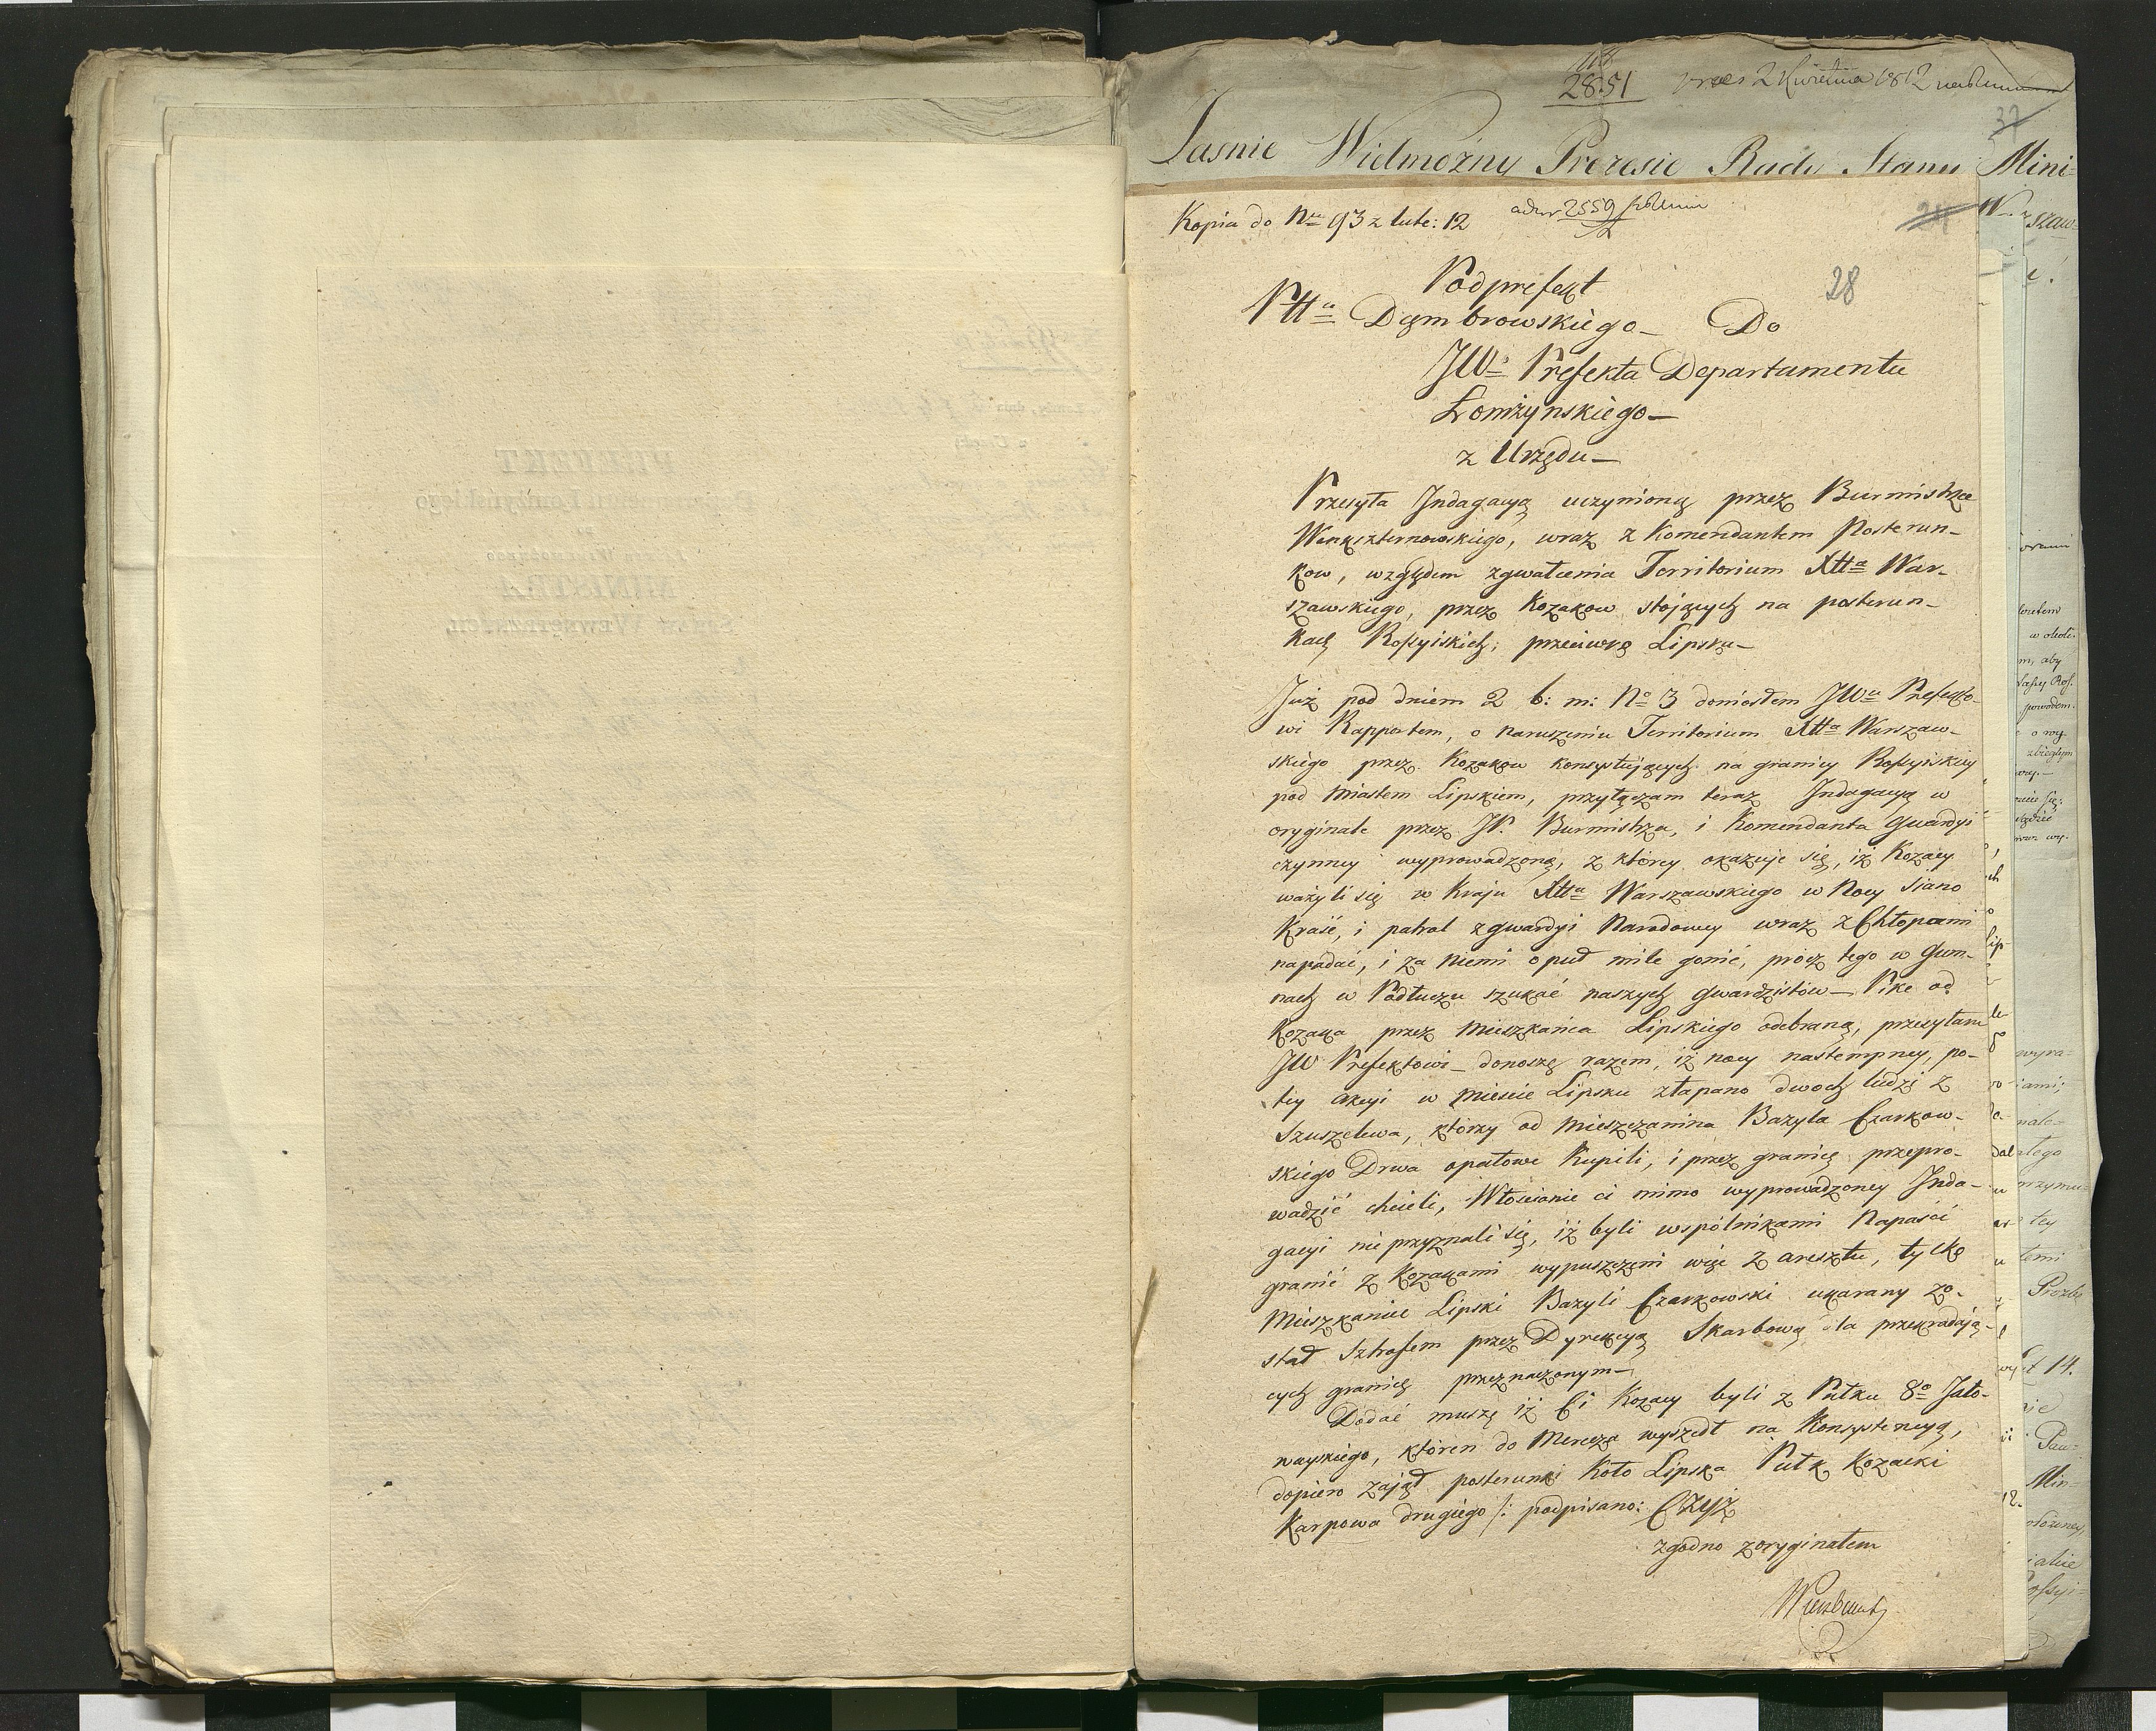 2851
2 Kwietnia 1812
Jasnie Wielmożny Prezesie Rady Stanu Mini=
37
Kopia do Nru 93 z lute: 12
ad nr 2559
28
Podprefekt
Pttu Dąmbrowskiego— Do
JWo Prefekta Departamentu
Łomżynskiego—
z Urzędu—
Przesyła Indagacyą uczynioną przez Burmistrza
wraz z Komendantem Posterun-
kow, względem zgwałcenia Territorium Xttа War-
szawskiego, przez Kozakow stojących na posterun-
kach Rossyiskich, przeciwko Lipsku—
Już pod dniem 2 b: m: No 3 doniosłem JWu Prefekto-
wi Rapportem, o naruszeniu Territorium Xtta Warszaw-
skiego przez Kozakow konsystujących na granicy Rossyiskiey
pod Miastem Lipskiem, przyłączam teraz Indagacyą w
oryginale przez JP. Burmistrza, i Komendanta Gwardyi
czynney wyprowadzoną, z ktorey okazuje się, iż Kozacy
ważyli się w Kraju Xtta Warszawskiego w Nocy Siano
Kraść, i patrol z gwardyi Narodowey wraz z Chłopami
napadać, i za niemi o puł mile gonić, procz tego w Gum-
nach w Podłuczu szukać naszych gwardzistów— Pike od
Kozaka przez Mieszkańca Lipskiego odebraną, przesyłam
JW Prefektowi— donoszę razem, iż nocy nastempney, po
tey akcyi w Mieście Lipsku złapano dwoch ludzi z
Szuszalewa, ktorzy od Mieszczanina Bazyla Czarkow-
skiego Drwa opałowe Kupili, i przez granicę przepro-
wadzić chcieli, Włościanie ci mimo wyprowadzoney Inda-
gacyi nie przyznali się, iż byli wspólnikami Napaści
granic z Kozakami wypuszczeni więc z aresztu, tylko
Mieszkaniec Lipski Bazyli Czarkowski ukarany zo-
stał Sztrafem przez Dyrekcyą Skarbową dla przekradają-
cych granicę przeznaczonym—
Dodać muszę iż Ci Kozacy byli z Pułku 8o Iło-
wayskiego, któren do Merecza wyszedł na Konsystencyą,
dopiero zajął posterunki Koło Lipska Pułk Kozacki
Karpowa drugiego /: podpisano: Czyż
zgodno z oryginałem